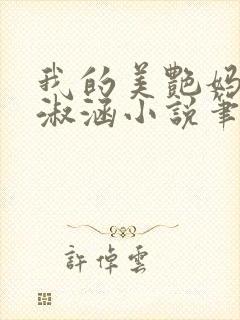 我的美艷妈
淑涵小說筆
許倬雲